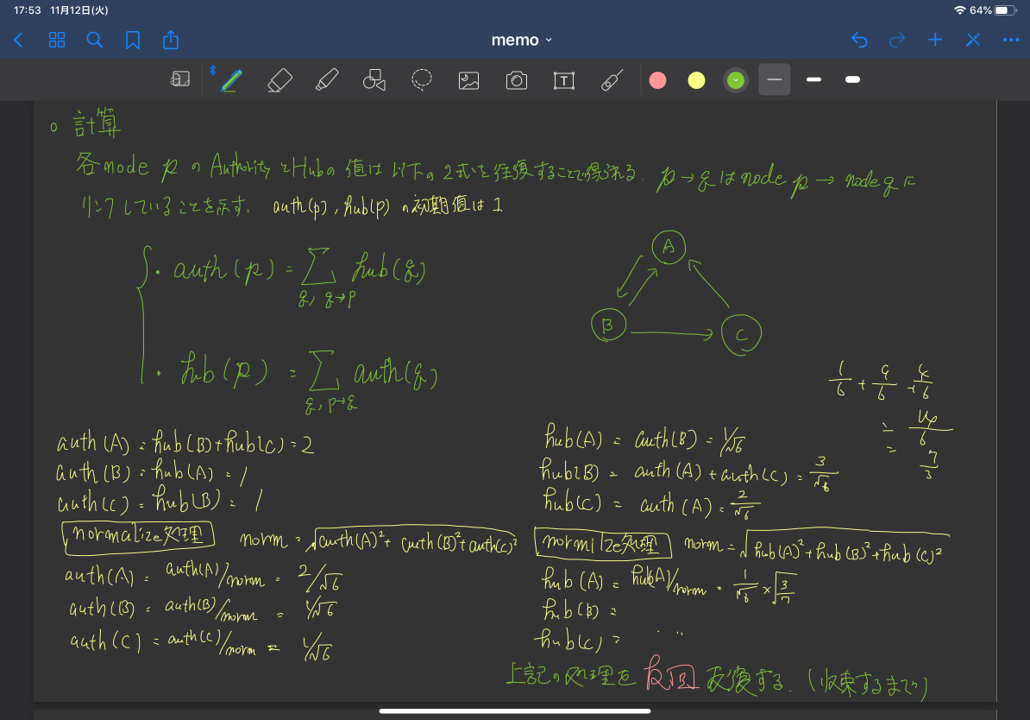 17:53 11月12日(火)
64%
memo
○ 計算
各node p の AuthorityとHubの値は以下の2式を往復することで得られる. p→qはnode p → node qに
リンクしていることを示す. auth(p), hub(p) の初期値は1
・auth(p) = Σ hub(q)
q, q→p
・hub(p) = Σ auth(q)
q, p→q
A
B
C
auth(A) = hub(B)+hub(C) = 2
auth(B) = hub(A) = 1
auth(C) = hub(B) = 1
normalize処理 norm = √auth(A)²+ auth(B)²+auth(C)²
auth(A) = auth(A)/norm = 2/√6
auth(B) = auth(B)/norm = 1/√6
auth(C) = auth(C)/norm = 1/√6
hub(A) = auth(B) = 1/√6
hub(B) = auth(A)+auth(C) = 3/√6
hub(C) = auth(A) = 2/√6
normilze処理 norm = √hub(A)²+hub(B)²+hub(C)²
hub(A) = hub(A)/norm = 1/√6 × √3/7
hub(B) =
hub(C) = ...
1/6 + 9/6 + 4/6
= 14/6
= 7/3
上記の処理を 反回 反復する. (収束するまで)